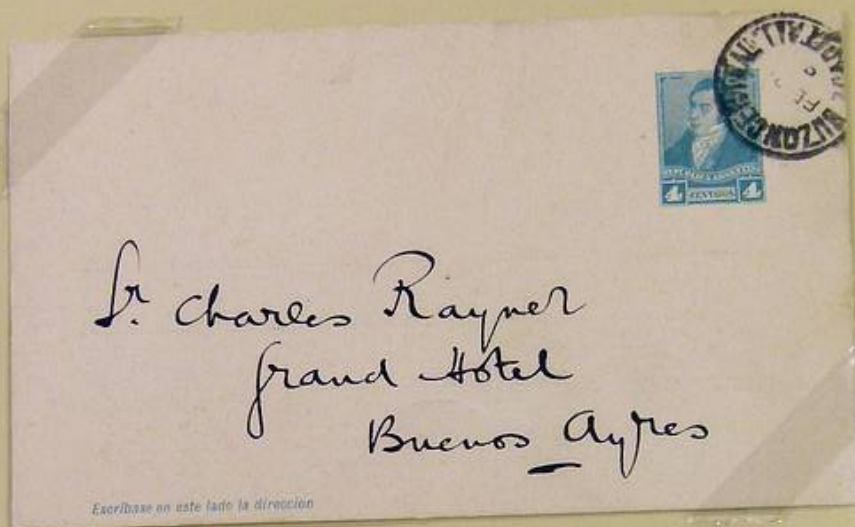 BUZON CENTRAL
FE
REPUBLICA ARGENTINA
4 CENTAVOS 4
Sr. Charles Rayner
Grand Hotel
Buenos Ayres
Escríbase en este lado la direccion